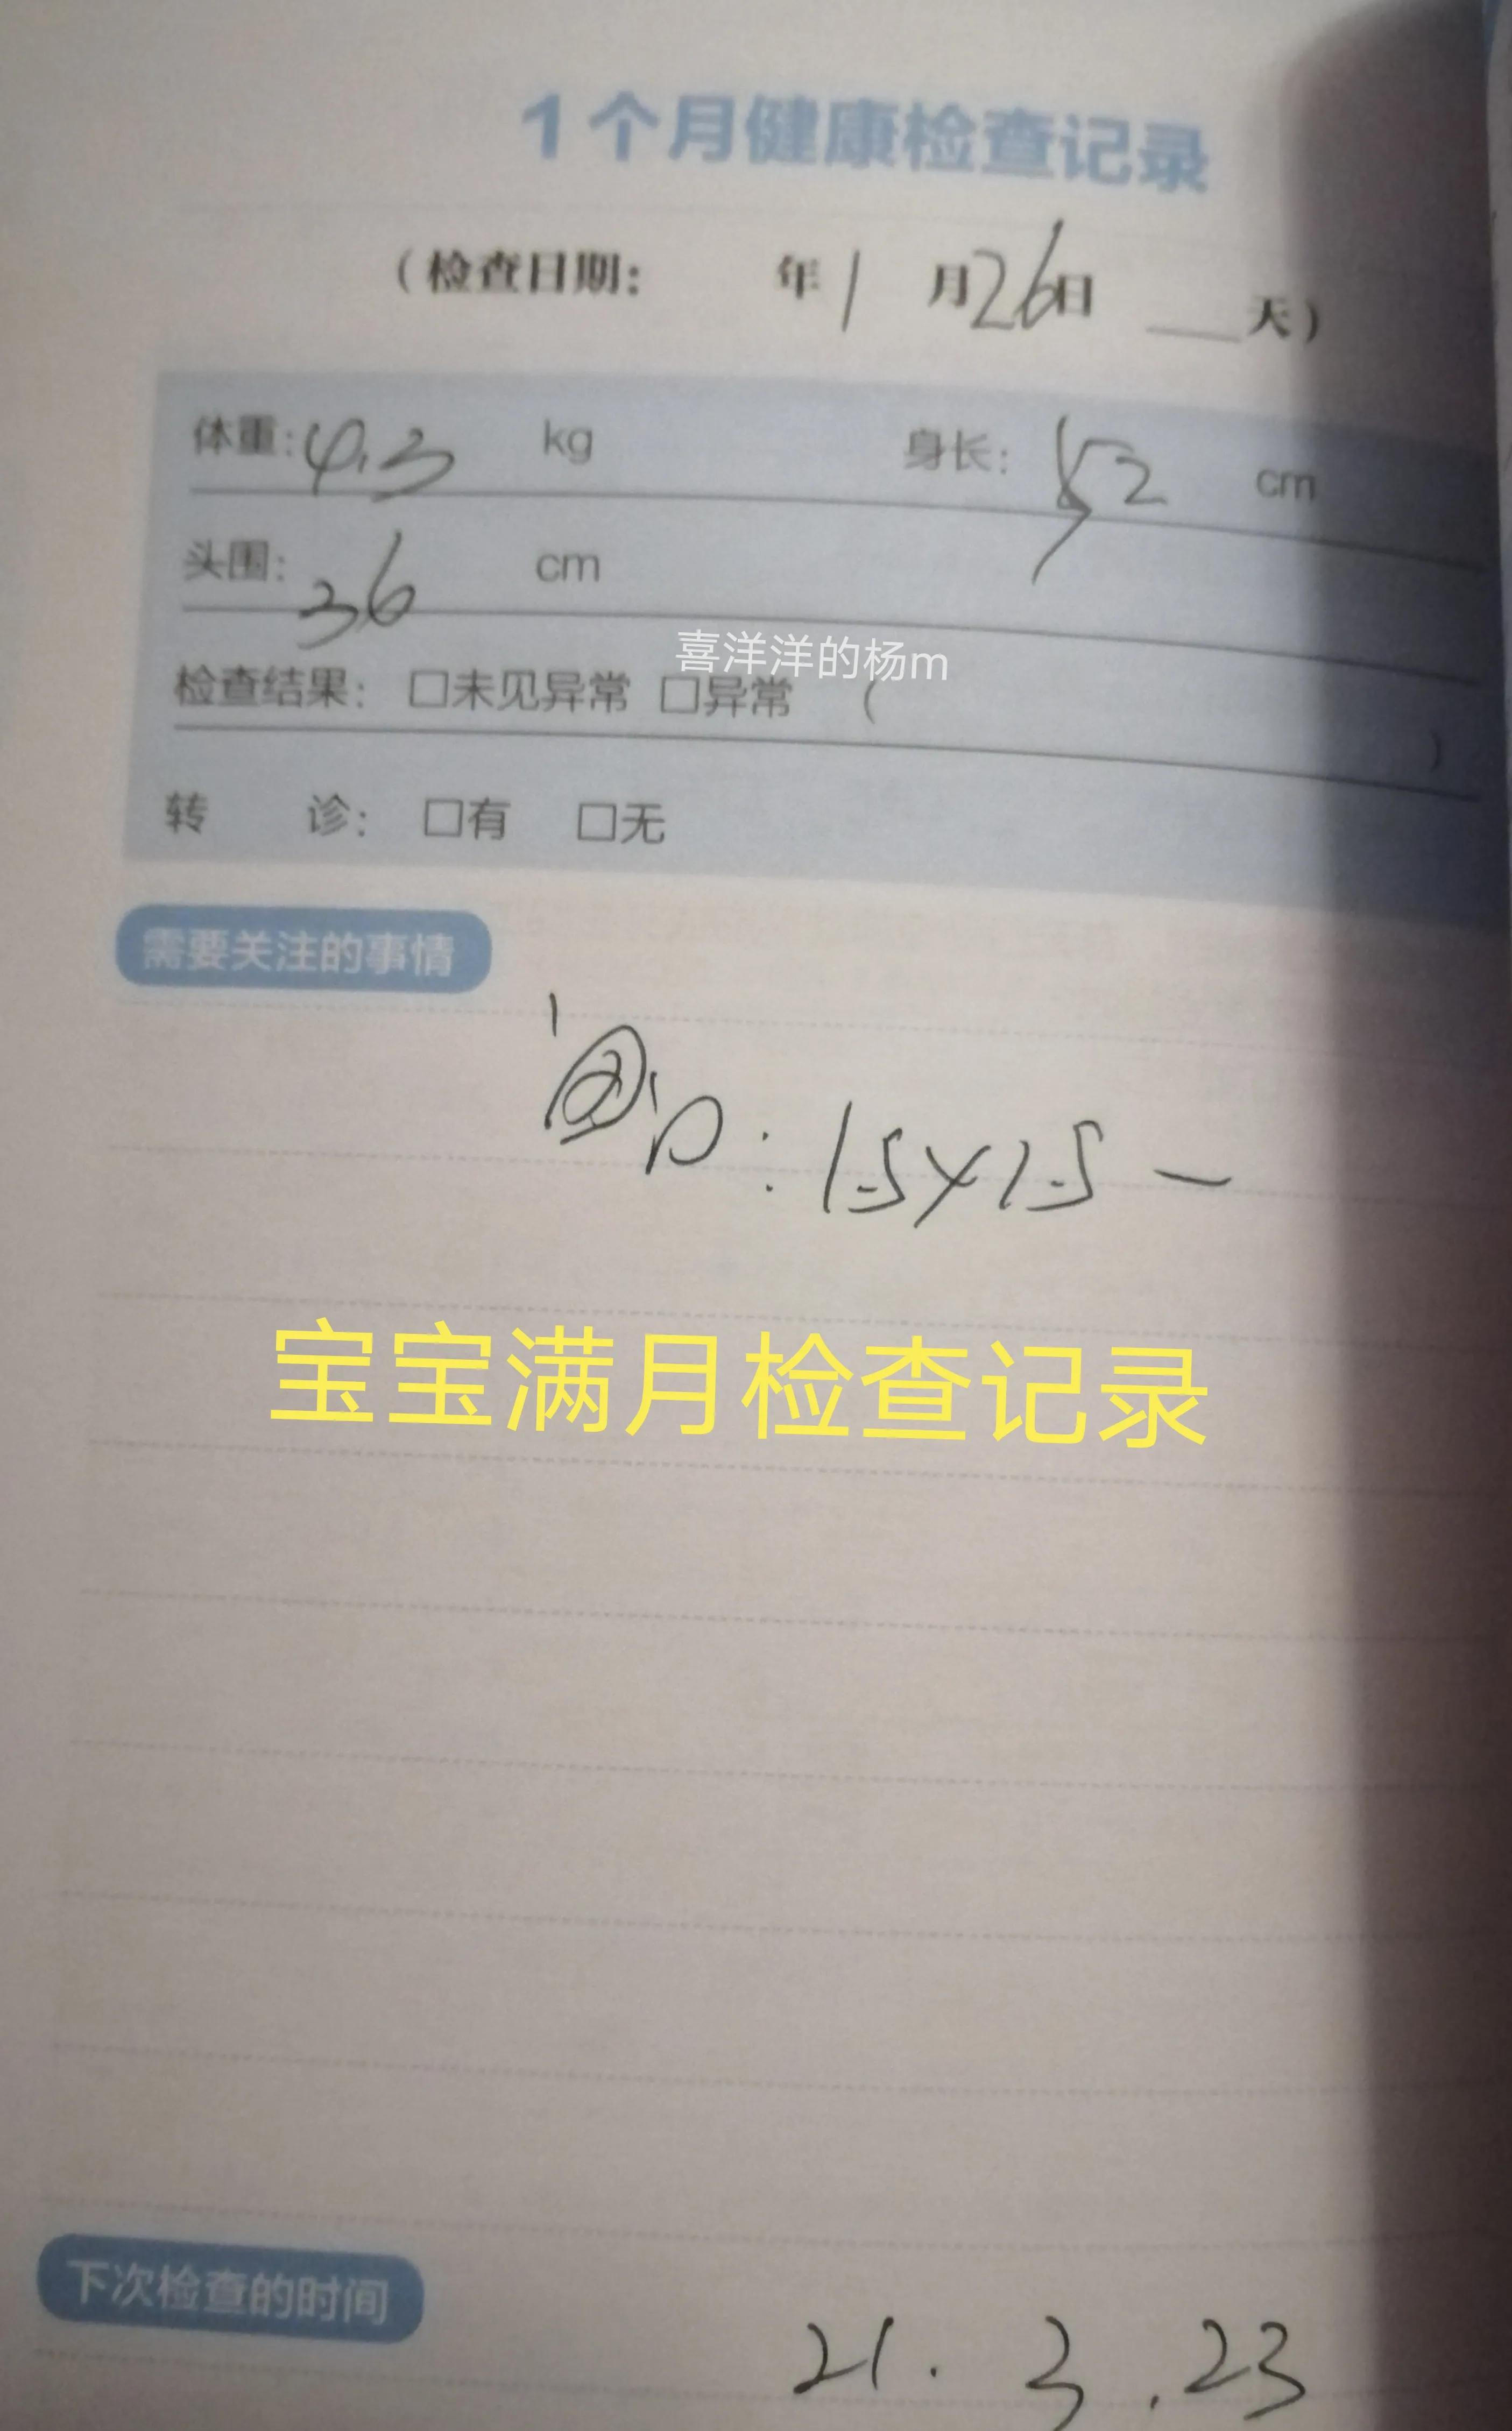 1个月健康检查记录
(检查日期: 年1月26日 ___天)
体重:4.3 kg 身长:52 cm
头围:36 cm
喜洋洋的杨m
检查结果: □未见异常 □异常 ( )
转 诊: □有 □无
需要关注的事情
:1.5×1.5
宝宝满月检查记录
下次检查的时间
21.3.23